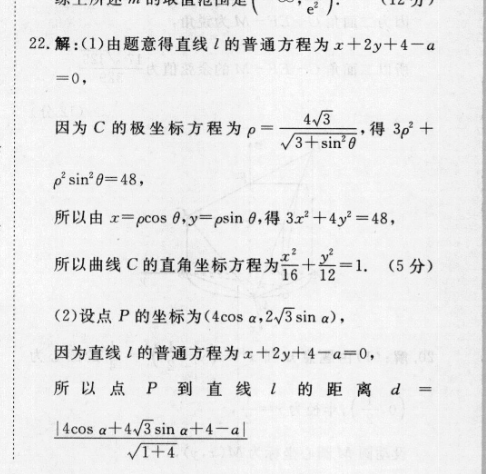 22.解:(1)由题意得直线 l 的普通方程为 x+2y+4−a
=0,
因为 C 的极坐标方程为 ρ=4√3/√(3+sin²θ),得 3ρ²+
ρ²sin²θ=48,
所以由 x=ρcos θ,y=ρsin θ,得 3x²+4y²=48,
所以曲线 C 的直角坐标方程为x²/16+y²/12=1. (5 分)
(2)设点 P 的坐标为(4cos α,2√3sin α),
因为直线 l 的普通方程为 x+2y+4−a=0,
所以点 P 到直线 l 的距离 d =
|4cos α+4√3sin α+4−a|/√(1+4)